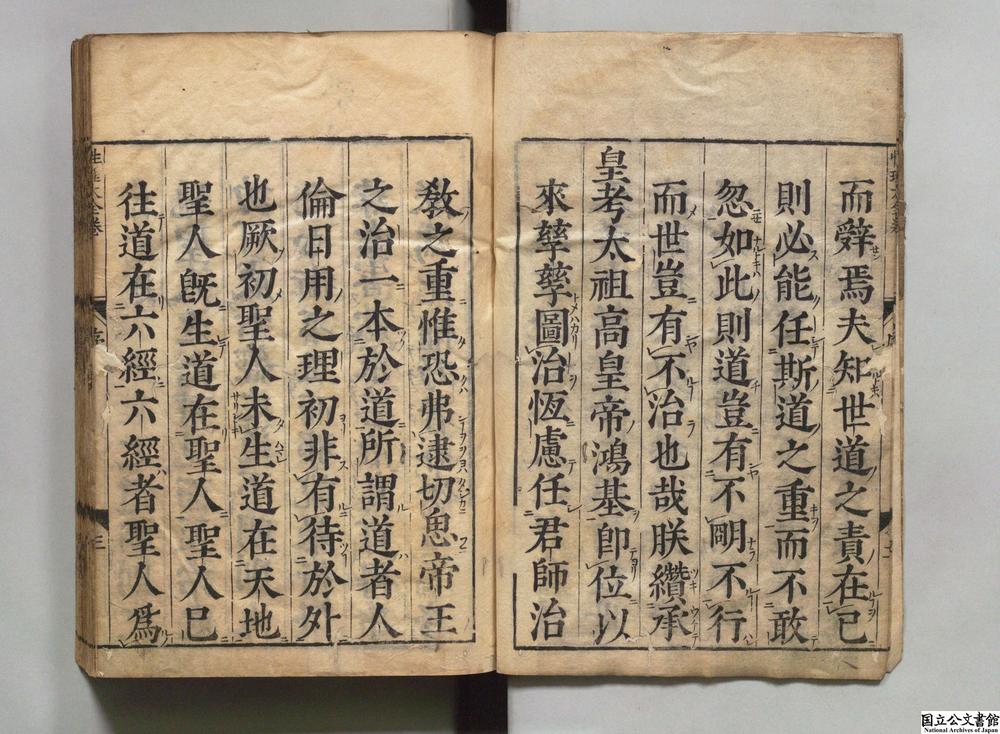 而辭焉夫知世道之責在已
則必能任斯道之重而不敢
忽如此則道豈有不明不行
而世豈有不治也哉朕纘承
皇考太祖高皇帝鴻基卽位以
來孳孳圖治恆慮任君師治
敎之重惟恐弗逮切思帝王
之治一本於道所謂道者人
倫日用之理初非有待於外
也厥初聖人未生道在天地
聖人旣生道在聖人聖人已
往道在六經六經者聖人爲
序
三
国立公文書館
National Archives of Japan